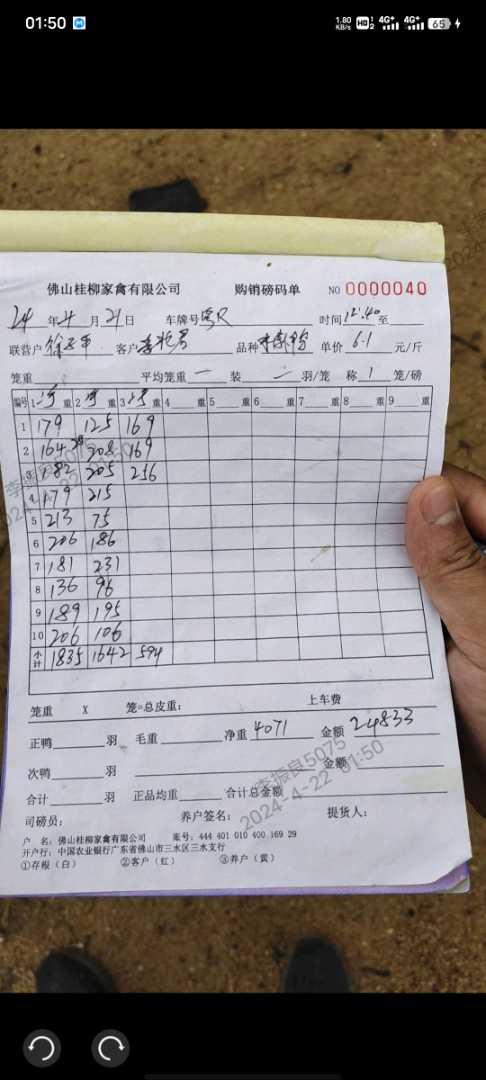 01:50 1.80 KB/s HD 1 2 4G+ 4G+ 65
佛山桂柳家禽有限公司 购销磅码单 NO 0000040
24 年 4 月 21 日 车牌号 时间 12:40 至
联营户 客户 品种 单价 6.1 元/斤
笼重 平均笼重 一 装 羽/笼 称 1 笼/磅
编号 1 重 2 重 3 重 4 重 5 重 6 重 7 重 8 重 9 重
1 179 125 169
2 164 208 169
3 182 205 256
4 179 215
5 213 75
6 206 186
7 181 231
8 136 96
9 189 195
10 206 106
小计 1835 1642 594
笼重 X 笼=总皮重: 上车费
正鸭 羽 毛重 净重 4071 金额 24833
次鸭 羽 金额
合计 羽 正品均重 合计总金额
司磅员: 养户签名: 提货人:
户 名: 佛山桂柳家禽有限公司 账号: 444 401 010 400 169 29
开户行: 中国农业银行广东省佛山市三水区三水支行
①存根(白) ②客户(红) ③养户(黄)
李振良5075
2024-4-22 01:50